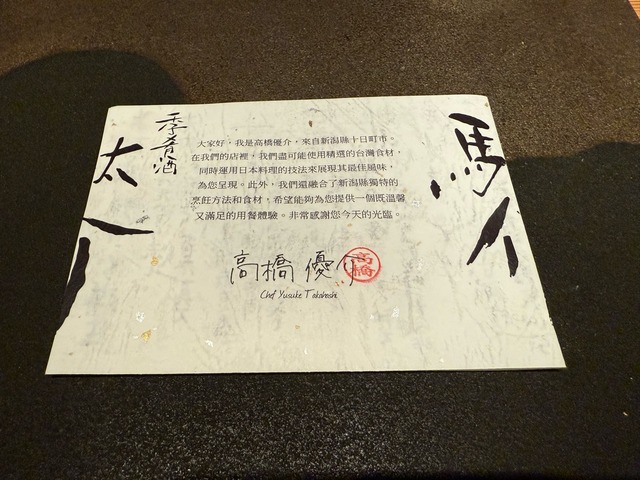 季肴酒
太
馬
大家好，我是高橋優介，來自新潟縣十日町市。
在我們的店裡，我們盡可能使用精選的台灣食材，
同時運用日本料理的技法來展現其最佳風味，
為您呈現。此外，我們還融合了新潟縣獨特的
烹飪方法和食材，希望能夠為您提供一個既溫馨
又滿足的用餐體驗。非常感謝您今天的光臨。
高橋優介
高橋
Chef Yusuke Takahashi